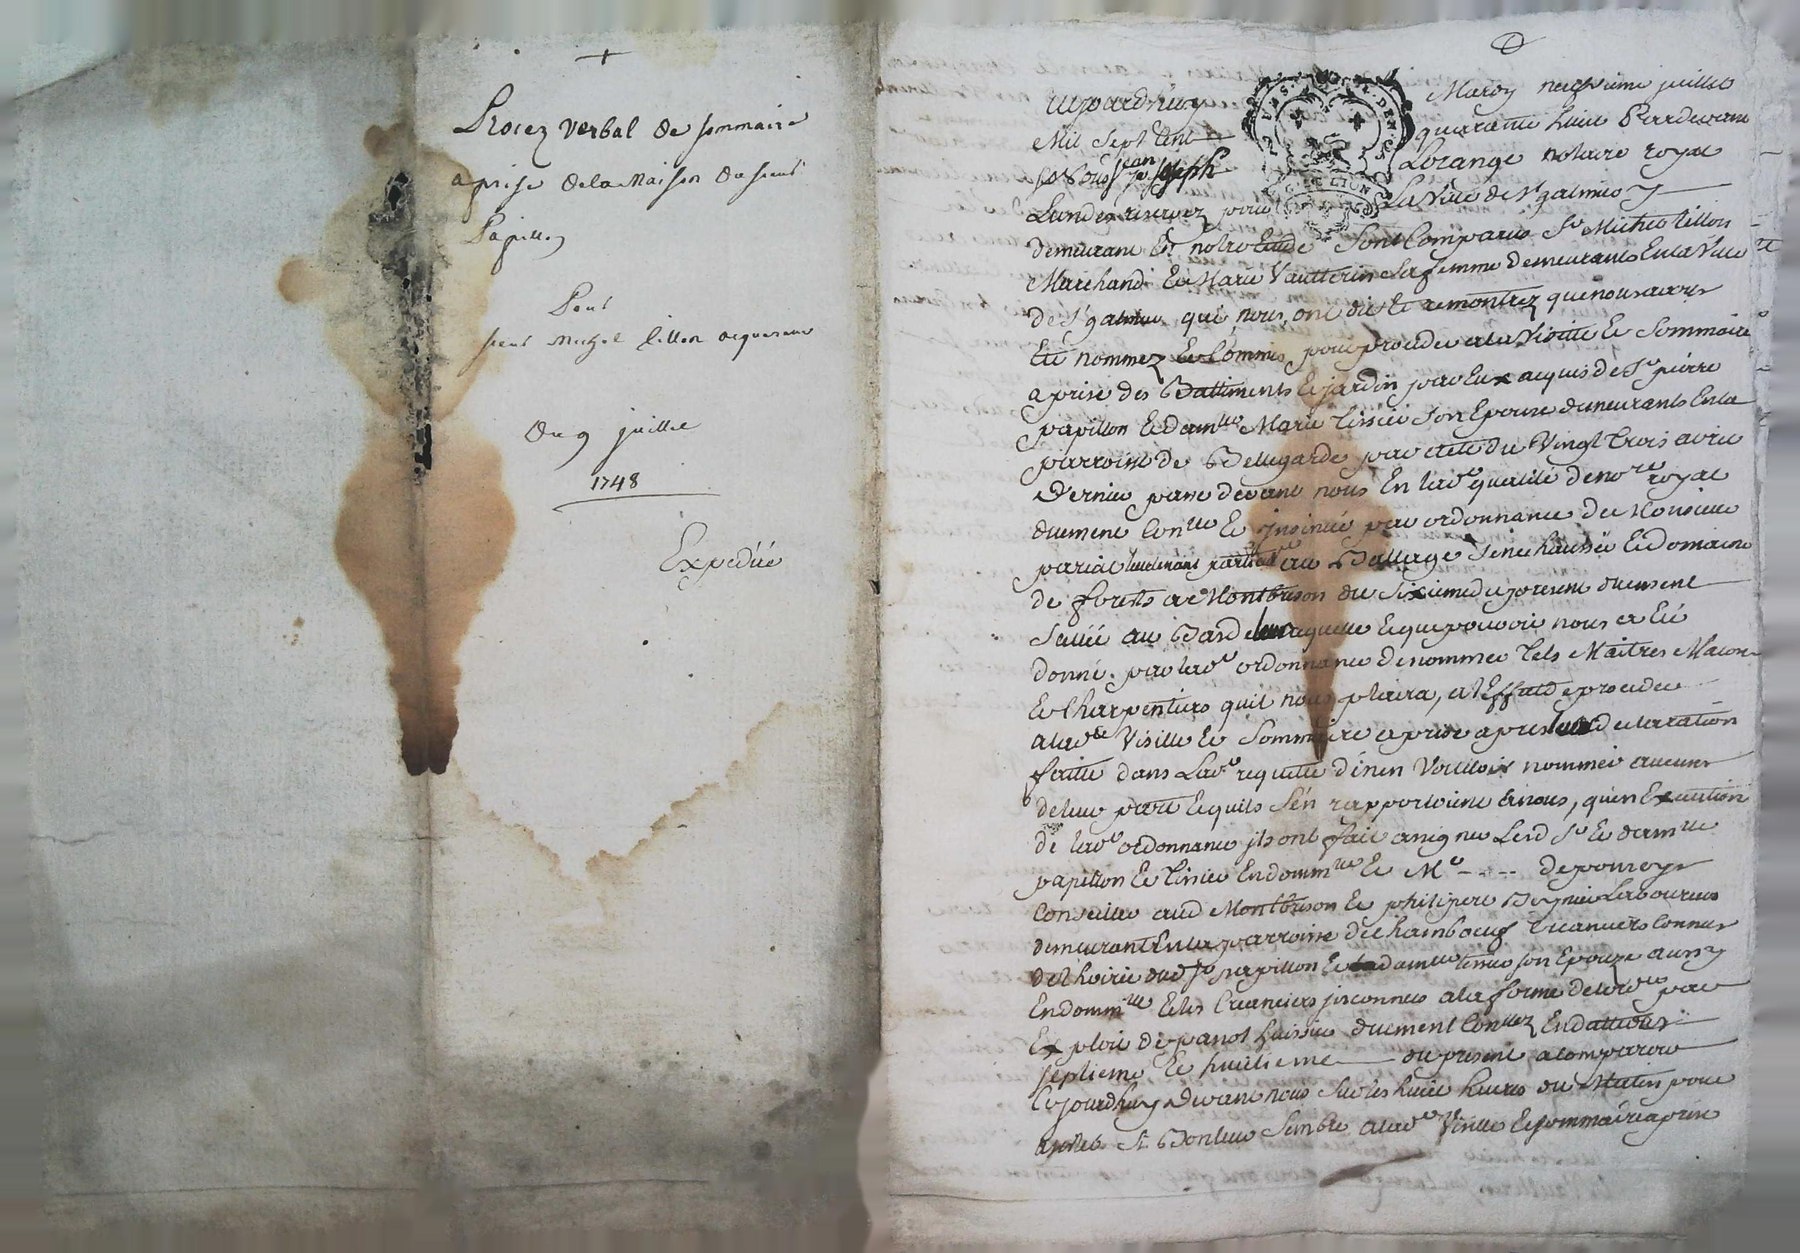 Procez verbal de sommaire
aprise dela Maison du sieur
Papillon
Pour
sieur Michel Tillon acquereur
du 9 juillet
1748
Expediée
aujourd'huy Mardy neufvieme juillet
Mil sept cent quarante huit Pardevant
Nous jean joseph Lorange notaire royal
La Ville de St galmier
demeurant Et notre Etude sont Comparus Sr Michel tillon
Marchand Et Marie Vautterin sa femme demeurants En la Ville
de St galmier qui nous ont dit et remontrez que nous avons
Eté nommez Et Commis pour proceder a la Visitte Et Sommaire
aprise des Battiments Et jardin par Eux acquis de Sr pierre
papillon Et damlle Marie Tissier son Epouse demeurants En la
parroisse de Bellegarde par acte du Vingt trois avril
dernier passé devant nous En lade qualité de nore royal
duement Conlle Et jnsinué par ordonnance de Monsieur
lieutenant particulier au Balliage Senechaussée Et domaine
de forests a Montbrison du sixieme du present duement
Sellée au Bas de leur requette Et que pouvoir nous a Eté
donné par lade ordonnance de nommer tels Maitres Macons
Et Charpentiers quil nous plaira, a l'Effait de proceder
a lade Visitte Et Sommaire aprise apres leur declaration
faitte dans lade requette d'en Vouloir nommer aucuns
de leur part Et quils s'en rapportoient a nous, qu'en Execution
de lade ordonnance jls ont fait assigner Lesd Sr Et damlle
papillon Et Tissier Et Me ---- de pomeys
Conseiller aud Montbrison Et philipert Laboureur
demeurant En la parroisse de Chambœuf Creanciers Connus
de l'hoirie dud Sr papillon Et lad damlle tissier son Epouze aussy
Et les Creanciers jnconnus a la forme de lorde par
Exploit de panot huissier duement Conllez En datte des
septieme Et huitieme du present a Comparoir
Cejourd'huy devant nous sur les huit heures du Matin pour
apres Si Bon leur Semble a lade Visitte Et sommaire aprise